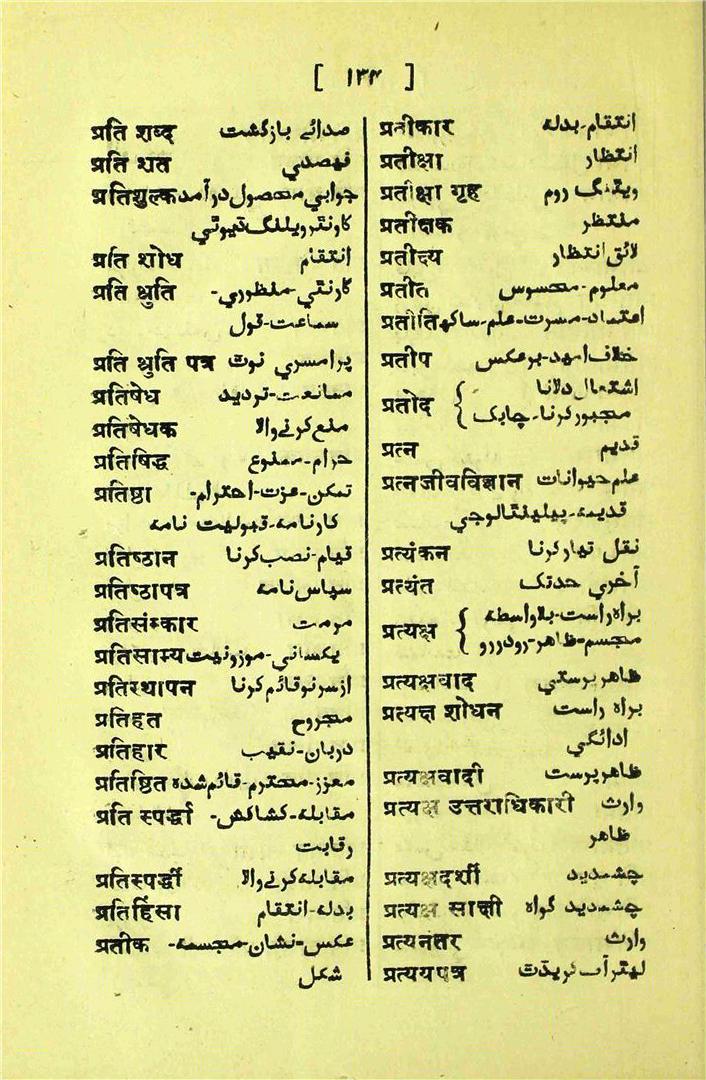 [ ۱۳۴ ]
प्रति शब्द صدائے بازگشت
प्रति शत فیصدی
प्रतिशुल्क جوابی محصول درآمد
کاونٹر ویلنگ ڈیوٹی
प्रति शोध انتقام
प्रति श्रुति گارنٹی-منظوری-
سماعت-قول
प्रति श्रुति पत्र پرامسری نوٹ
प्रतिषेध ممانعت-تردید
प्रतिषेधक منع کرنے والا
प्रतिषिद्ध حرام-ممنوع
प्रतिष्ठा تمکن-عزت-احترام-
کارنامہ-قبولیت نامہ
प्रतिष्ठान قیام-نصب کرنا
प्रतिष्ठापत्र سپاس نامہ
प्रतिसंस्कार مرمت
प्रतिसाम्य یکسانی-موزونیت
प्रतिस्थापन ازسرنو قائم کرنا
प्रतिहत مجروح
प्रतिहार دربان-نقیب
प्रतिष्ठित معزز-محترم-قائم شدہ
प्रति स्पर्द्धा مقابلہ-کشاکش-
رقابت
प्रतिस्पर्द्धी مقابلہ کرنے والا
प्रतिहिंसा بدلہ-انتقام
प्रतीक عکس-نشان-مجسمہ-
شکل
प्रतीकार انتقام-بدلہ
प्रतीक्षा انتظار
प्रतीक्षा गृह ویٹنگ روم
प्रतीक्षक منتظر
प्रतीक्ष्य لائق انتظار
प्रतीत معلوم-محسوس
प्रतीति اعتماد-مسرت-علم-ساکھ
प्रतीप خلاف امید-برعکس
प्रतोद { اشتعال دلانا
مجبور کرنا-چابک
प्रत्न قدیم
प्रत्नजीवविज्ञान علم حیوانات
قدیمہ-پیلینٹالوجی
प्रत्यंकन نقل تیار کرنا
प्रत्यंत آخری حد تک
प्रत्यक्ष { براہ راست-بلاواسطہ
مجسم-ظاہر-رودررو
प्रत्यक्षवाद ظاہر پرستی
प्रत्यक्ष शोधन براہ راست
ادائگی
प्रत्यक्षवादी ظاہر پرست
प्रत्यक्ष उत्तराधिकारी وارث
ظاہر
प्रत्यक्षदर्शी چشمدید
प्रत्यक्ष साक्षी چشمدید گواہ
प्रत्यनंतर وارث
प्रत्ययपत्र لیٹر آف کریڈٹ